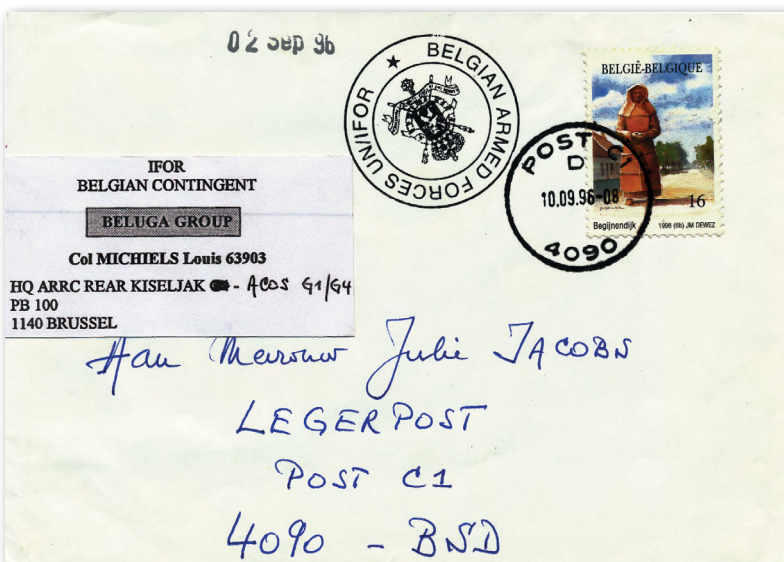 02 Sep 96
★ BELGIAN ARMED FORCES UN/IFOR
BELGIË-BELGIQUE
16
Begijnendijk 1996 (6b) JM DEWEZ
POST C1
D
10.09.96-08
4090
IFOR
BELGIAN CONTINGENT
BELUGA GROUP
Col MICHIELS Louis 63903
HQ ARRC REAR KISELJAK - ACOS G1/G4
PB 100
1140 BRUSSEL
Aan Mevrouw Julie JACOBS
LEGERPOST
POST C1
4090 - BSD